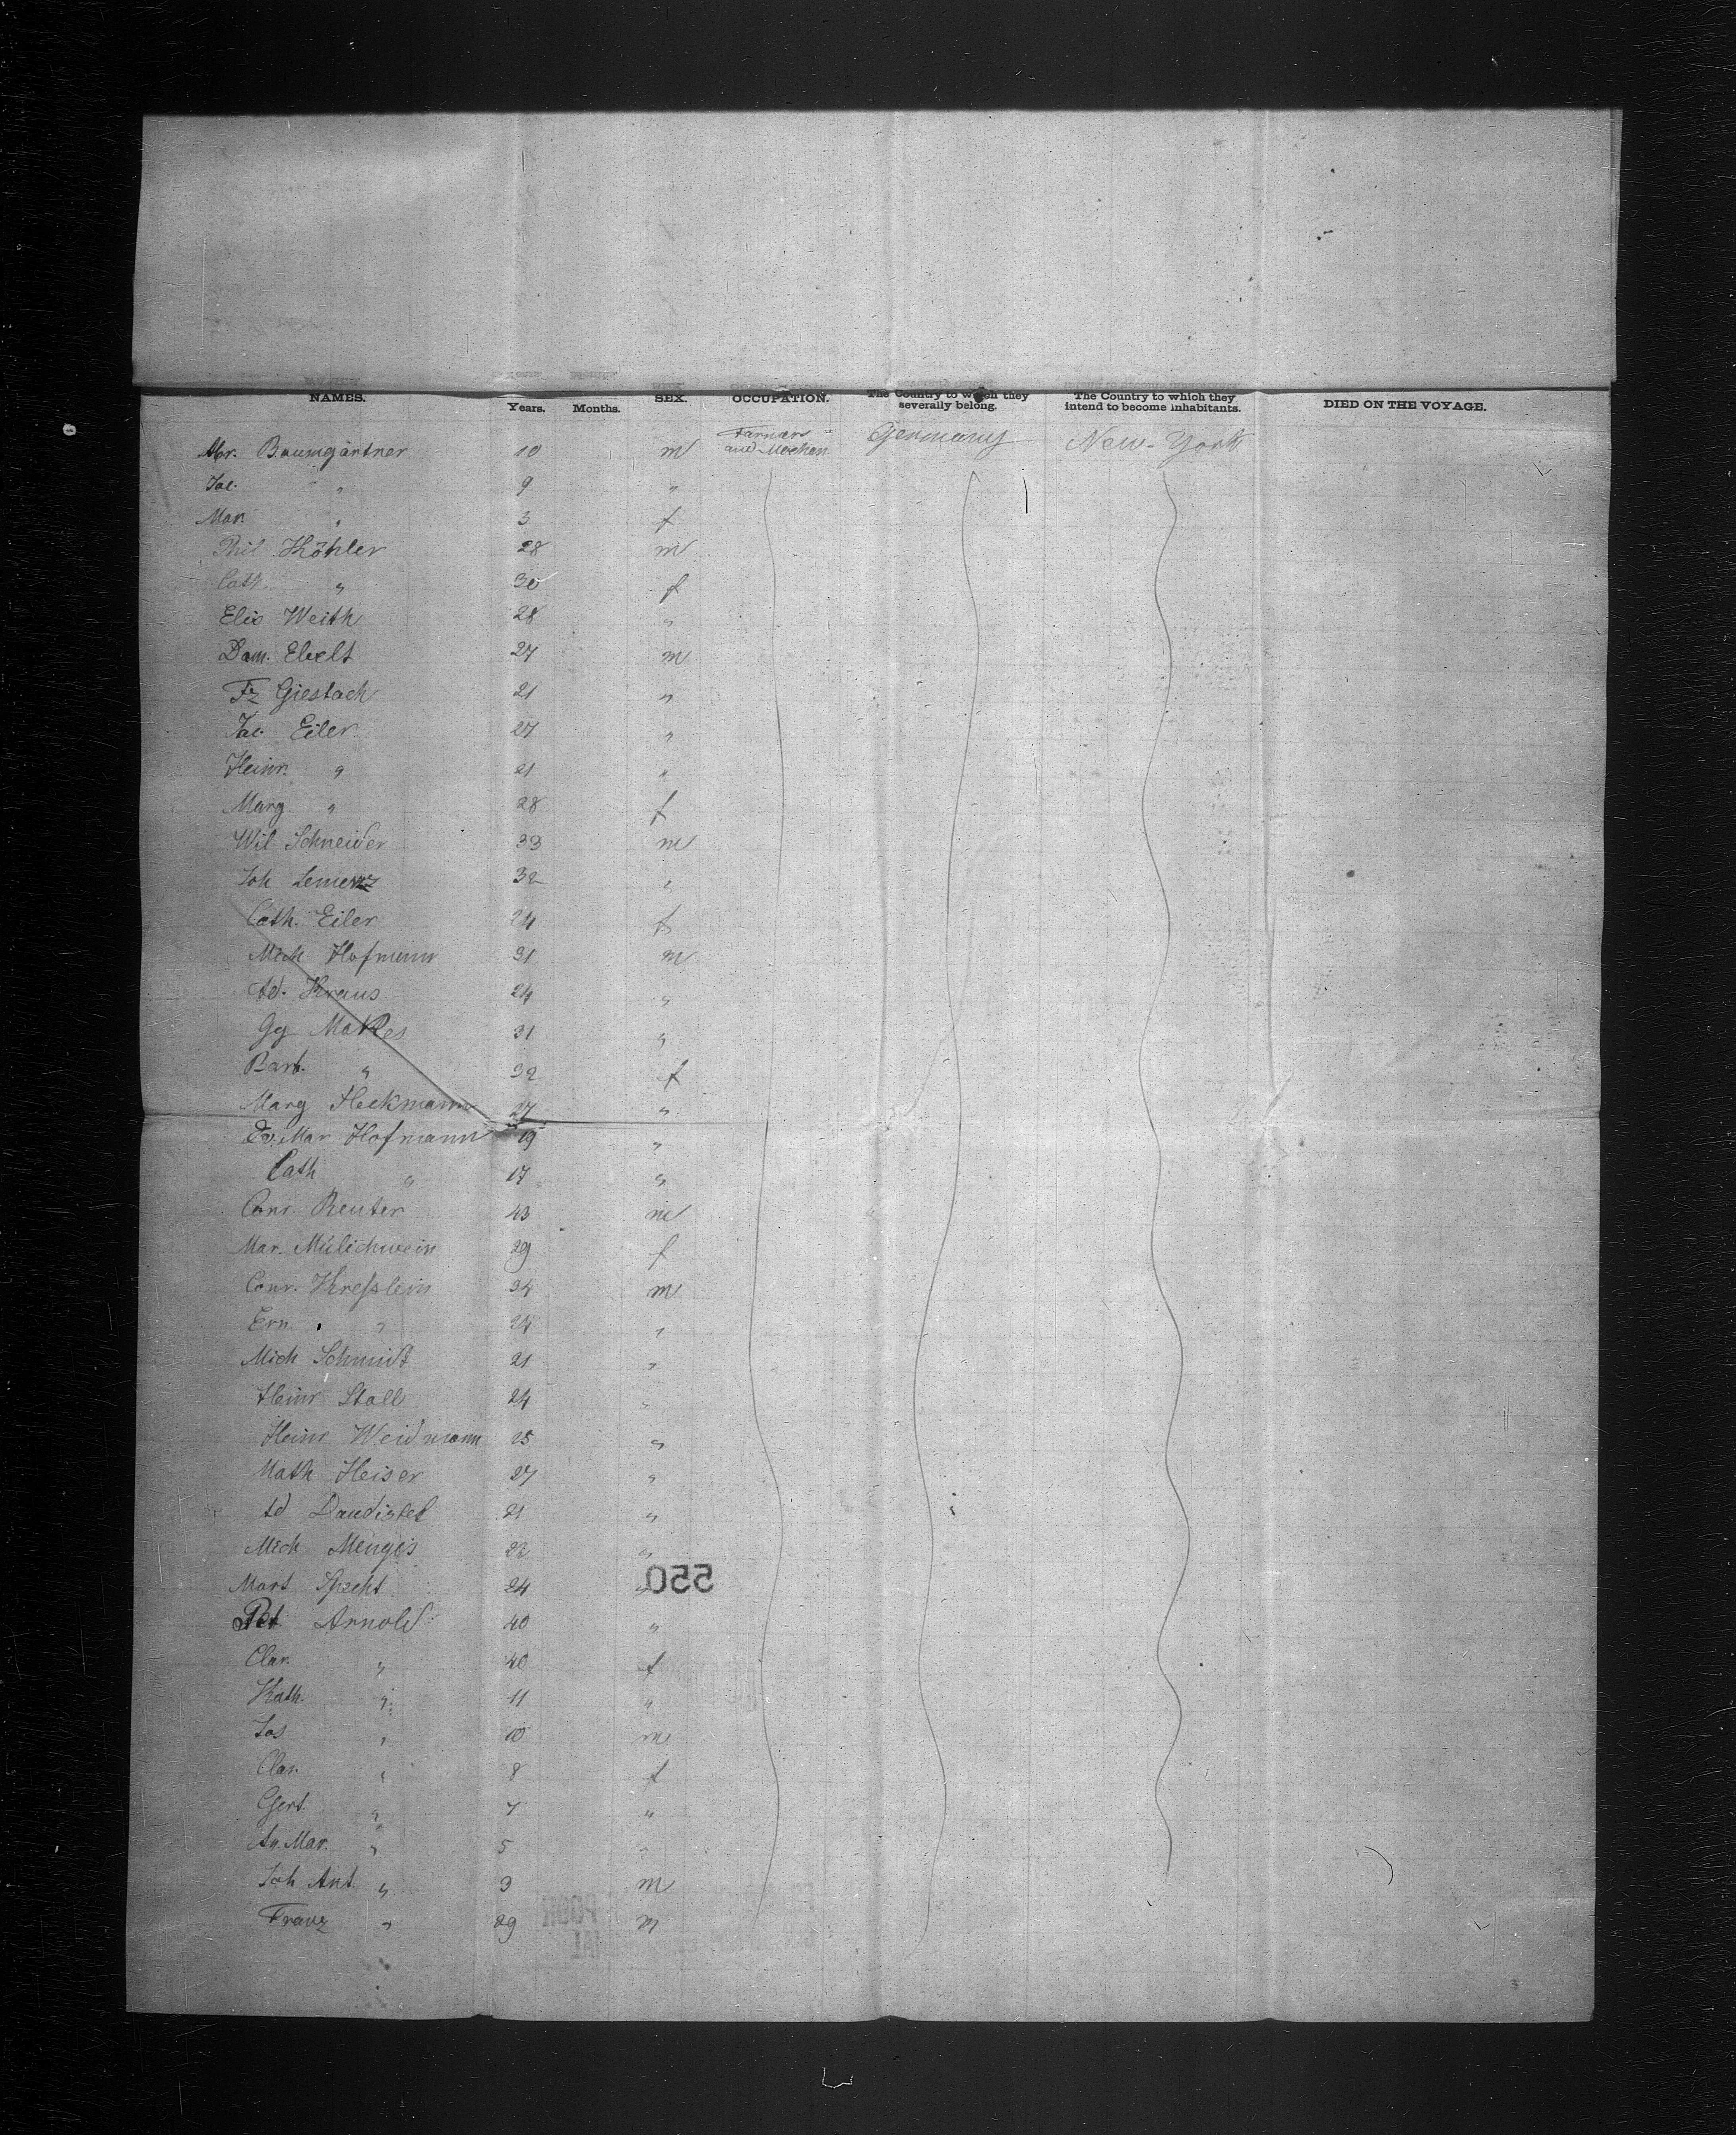 NAMES. Years. Months. SEX. OCCUPATION. The Country to which they severally belong. The Country to which they intend to become inhabitants. DIED ON THE VOYAGE.
Abr. Baumgärtner 10 m Farmars and Mechan Germany New-York
Jac. " 9 "
Mar. " 3 f
Phil Köhler 28 m
Cath. " 30 f
Elis Weith 28 "
Dam. Ebelt 27 m
Fz Giesbach 21 "
Jac. Eiler 27 "
Heinr. " 21 "
Marg. " 28 f
Wil Schneider 33 m
Joh Lemenz 32 "
Cath. Eiler 24 f
Mich Hofmann 31 m
Ad. Kraus 24 "
Gg Makes 31 "
Barb. " 32 f
Marg Heckmann 27 "
Ev. Mar Hofmann 19 "
Cath " 17 "
Conr. Reuter 43 m
Mar. Mülichwein 29 f
Conr. Kresslein 34 m
Ern. " 24 "
Mich Schmidt 21 "
Heinr Stall 24 "
Heinr Weidmann 25 "
Math Heiser 27 "
Ad Daudistel 21 "
Mich Menges 22 "
Mart Specht 24 "
550
Pet. Arnold 40 "
Clar. " 40 f
Kath. " 11 "
Jos " 10 m
Clar. " 8 f
Gert. " 7 "
An. Mar. " 5 "
Joh Ant. " 3 m
Franz " 29 m